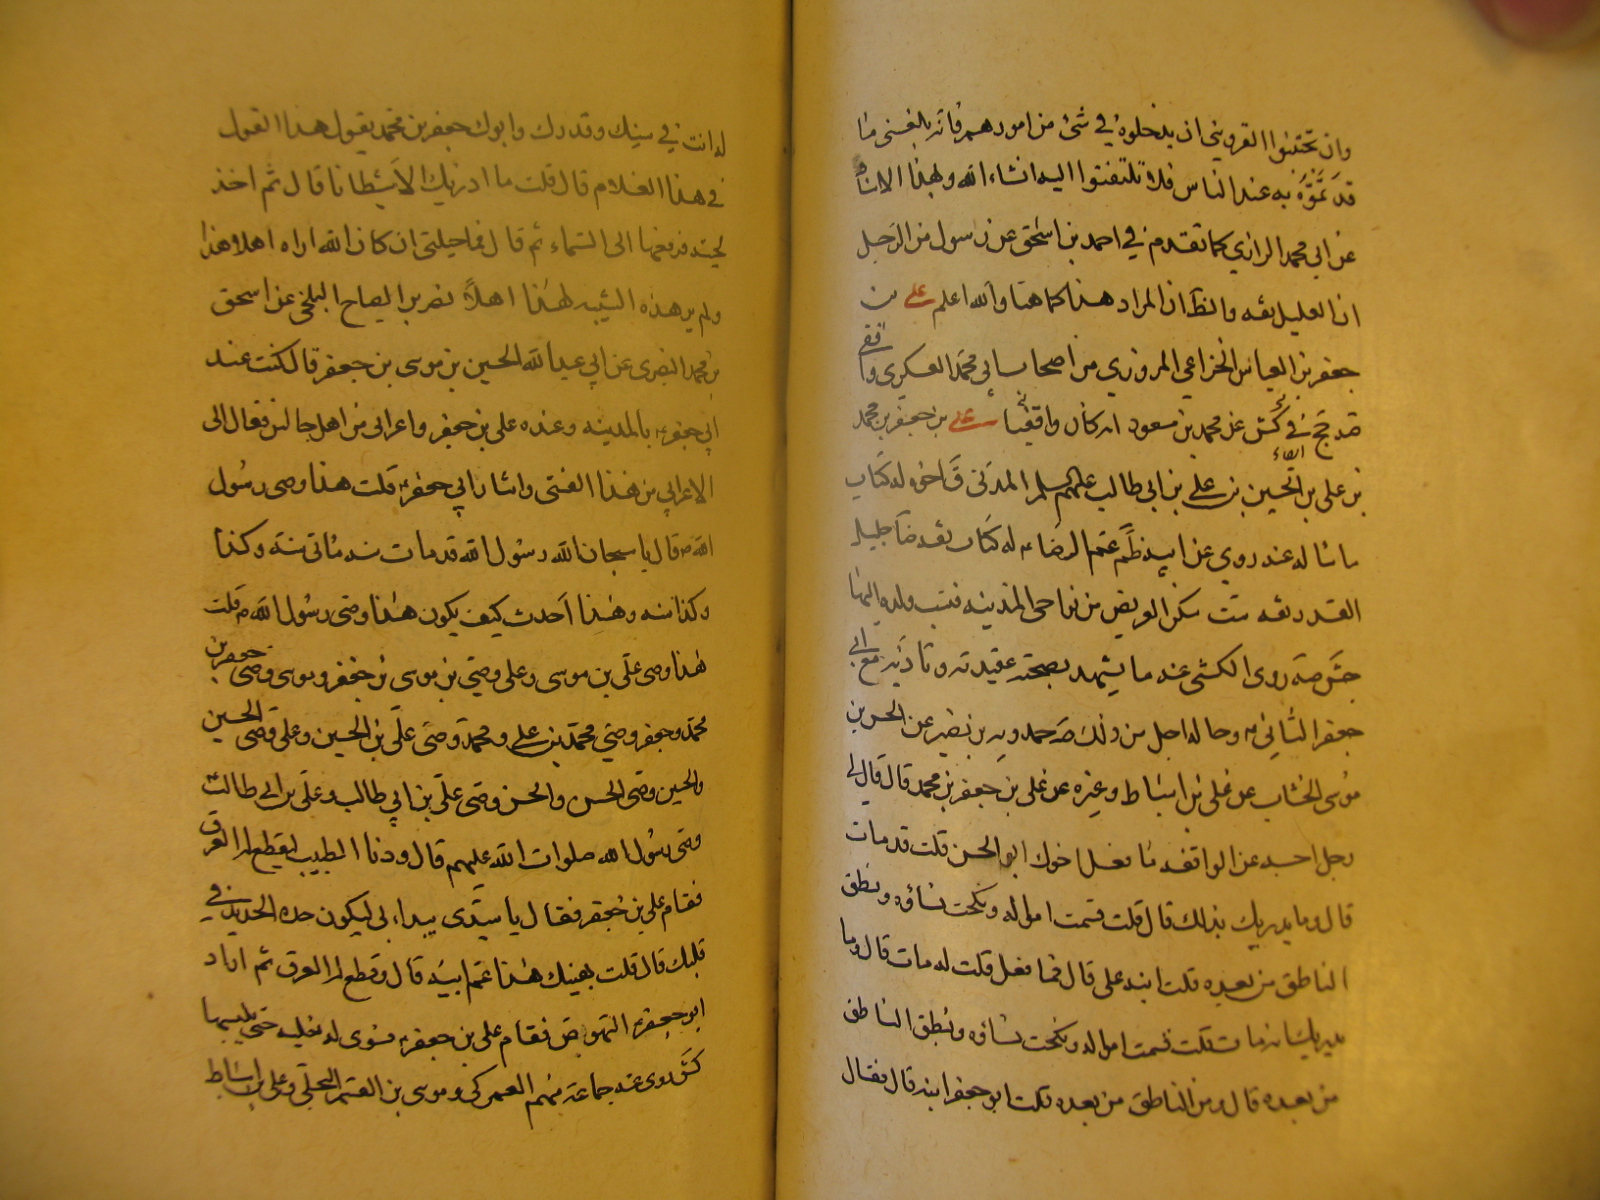 وان تجتنبوا القزويني ان يدخلوه في شئ من اموركم فانه بلغني ما
قد تموه به عند الناس فلا تلتفتوا اليه انشاء الله وبهذا الاسناد
عن ابي محمد الرازي كما تقدم في احمد بن اسحق عن رسول من الرجل
ان العليل ثقه والظ ان المراد هذا كما هنا والله اعلم على بن
جعفر بن العباس الخزاعي المروزي من اصحاب ابي محمد العسكري واقفي
في كش عن محمد بن مسعود انه كان واقفيا على بن جعفر بن محمد
بن علي بن الحسين بن علي بن ابي طالب عليهم السلم المدني ق اخوه له كتاب
ما ساله عنه روي عن ابيه ظم عمه الرضا له كتاب ثقه ضا جليل
القدر ثقه ست سكن العريض من نواحي المدينه فنسب ولده اليها
جش صه روى الكشي عنه ما يشهد بصحة عقيدته وتادبه مع ابي
جعفر الثاني وحاله اجل من ذلك صه حمدويه بن نصير عن الحسن بن
موسى الخشاب عن علي بن اسباط وغيره عن علي بن جعفر بن محمد قال قال لي
رجل احسبه من الواقفه ما فعل اخوك ابو الحسن قلت قد مات
قال وما يدريك بذلك قال قلت قسمت امواله ونكحت نساؤه ونطق
الناطق من بعده قلت ابنه علي قال فما فعل قلت له مات قال وما
يدريك انه مات قلت قسمت امواله ونكحت نساؤه ونطق الناطق
من بعده قال ومن الناطق من بعده قلت ابو جعفر ابنه قال فقال
له انت في سنك وقدرك وابوك جعفر بن محمد يقول هذا القول
في هذا الغلام قال قلت ما اراك الا شيطانا قال ثم اخذ
بلحيته فرفعها الى السماء ثم قال فما حيلتي ان كان الله اراه اهلا لهذا
ولم ير هذه الشيبه لهذا اهلا نصر بن الصباح البلخي عن اسحق
بن محمد البصري عن ابي عبد الله الحسين بن موسى بن جعفر قال كنت عند
ابي جعفر بالمدينه وعنده علي بن جعفر واعرابي من اهل جالس فقال الى
الاعرابي من هذا الفتى واشار الى ابي جعفر قلت هذا وصي رسول
الله قال يا سبحان الله رسول الله قد مات منذ ماتي سنه وكذا
وكذا سنه وهذا احدث كيف يكون هذا وصي رسول الله قلت
هذا وصي علي بن موسى وعلي وصي موسى بن جعفر وموسى وصي جعفر بن
محمد وجعفر وصي محمد بن علي ومحمد وصي علي بن الحسين وعلي وصي الحسين
والحسين وصي الحسن والحسن وصي علي بن ابي طالب وعلي بن ابي طالب
وصي رسول الله صلوات الله عليهم قال ودنا الطبيب ليقطع له العرق
فقام علي بن جعفر فقال يا سيدي يبدا بي ليكون حده الحديد في
قبلك قال قلت يهنيك هذا عم ابيه قال وقطع له العرق ثم اراد
ابو جعفر النهوض فقام علي بن جعفر فسوى له نعليه حتى يلبسها
كش روى عنه جماعة منهم العمركي وموسى بن القسم البجلي وعلي بن اسباط